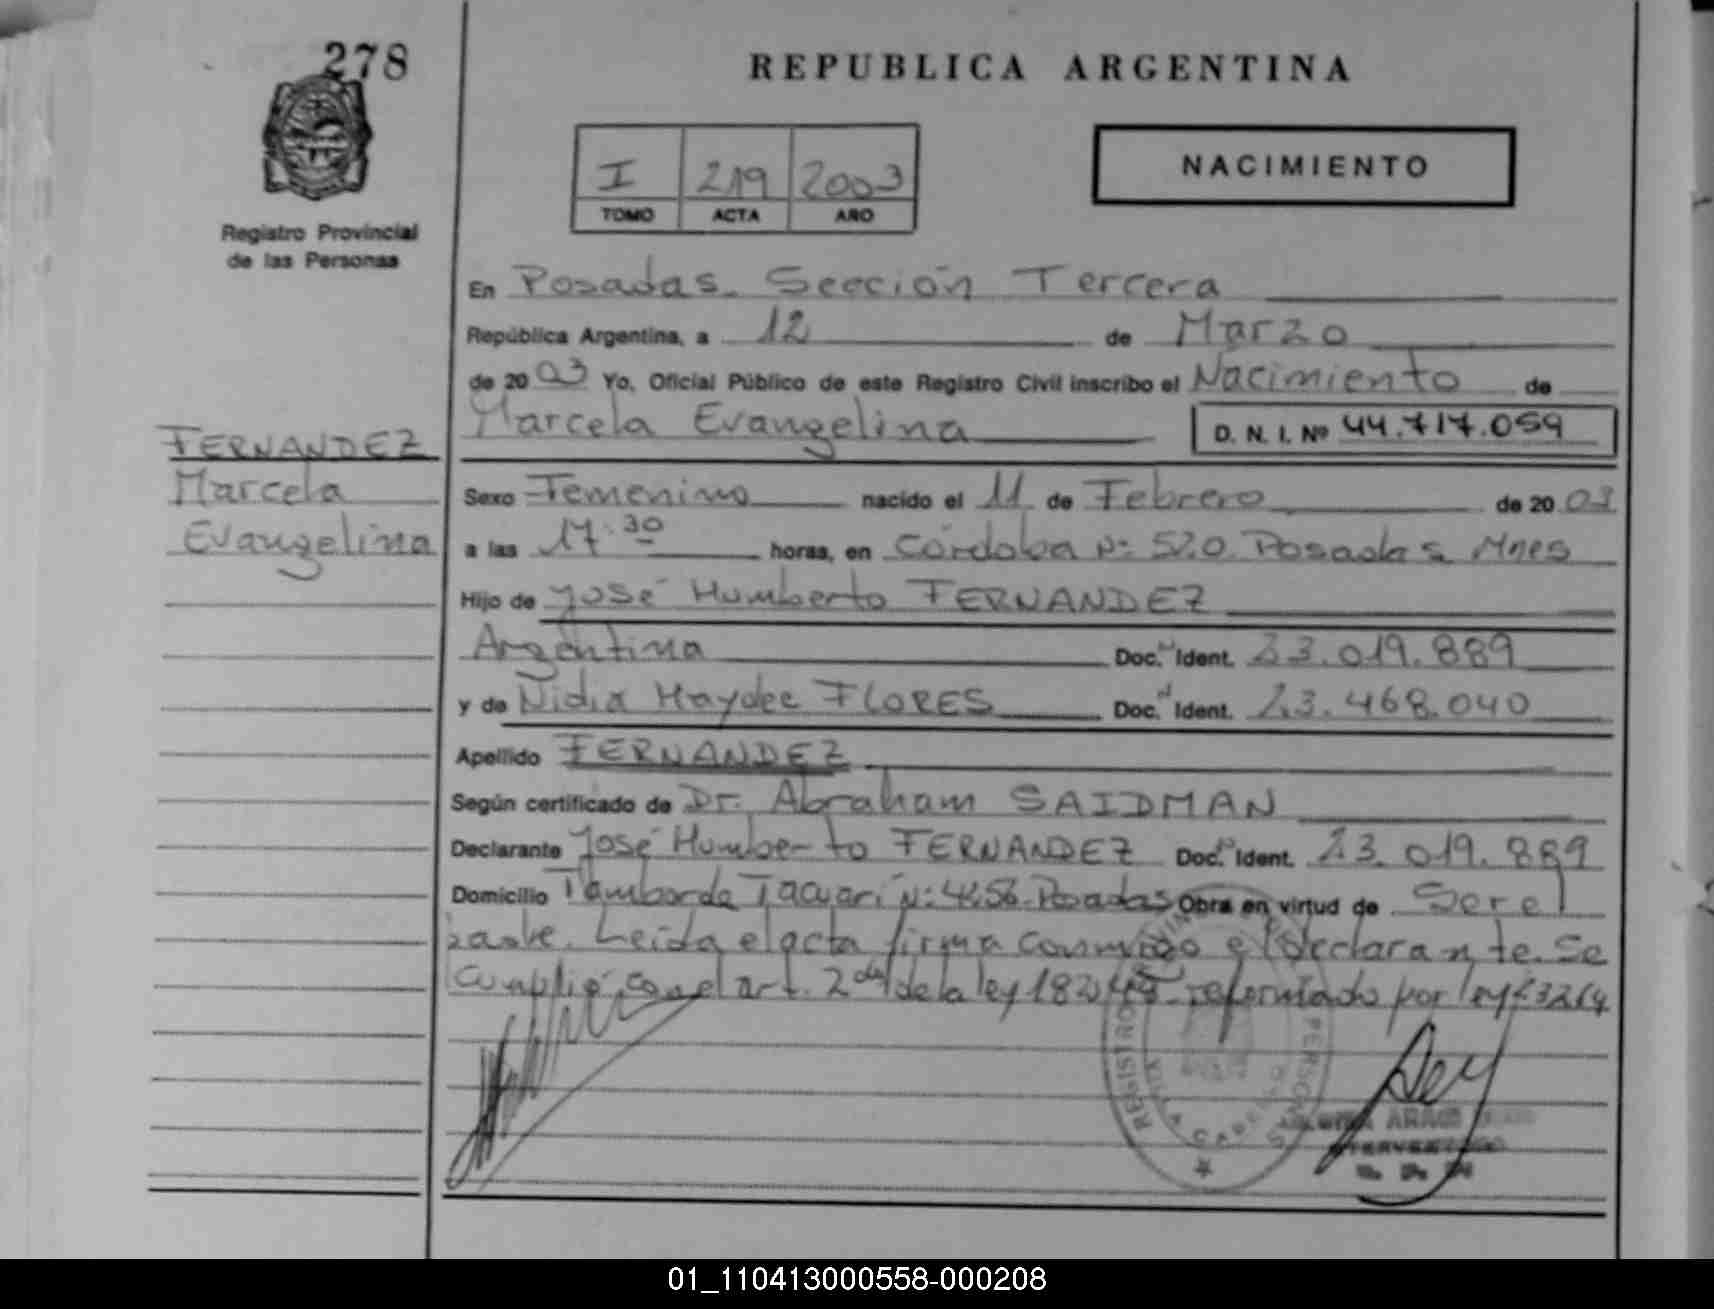 278
REPUBLICA ARGENTINA
I 219 2003
TOMO ACTA AÑO
NACIMIENTO
Registro Provincial
de las Personas
En Posadas. Sección Tercera
República Argentina, a 12 de Marzo
de 2003 Yo, Oficial Público de este Registro Civil inscribo el Nacimiento de
Marcela Evangelina D. N. I. Nº 44.717.059
FERNANDEZ
Marcela
Evangelina
Sexo Femenino nacido el 11 de Febrero de 2003
a las 17:30 horas, en Córdoba Nº 520. Posadas Mnes
Hijo de José Humberto FERNANDEZ
Argentina Doc. Ident. 23.019.889
y de Nidia Haydee FLORES Doc. Ident. 23.468.040
Apellido FERNANDEZ
Según certificado de Dr. Abraham SAIDMAN
Declarante José Humberto FERNANDEZ Doc. Ident. 23.019.889
Domicilio Tambor de Tacuarí Nº: 4256. Posadas Obra en virtud de Ser el
padre. Leída el acta firma conmigo el declarante. Se
cumplió con el art. 2do de la ley reformado por ley
REGISTRO PERSONAS
01_110413000558-000208